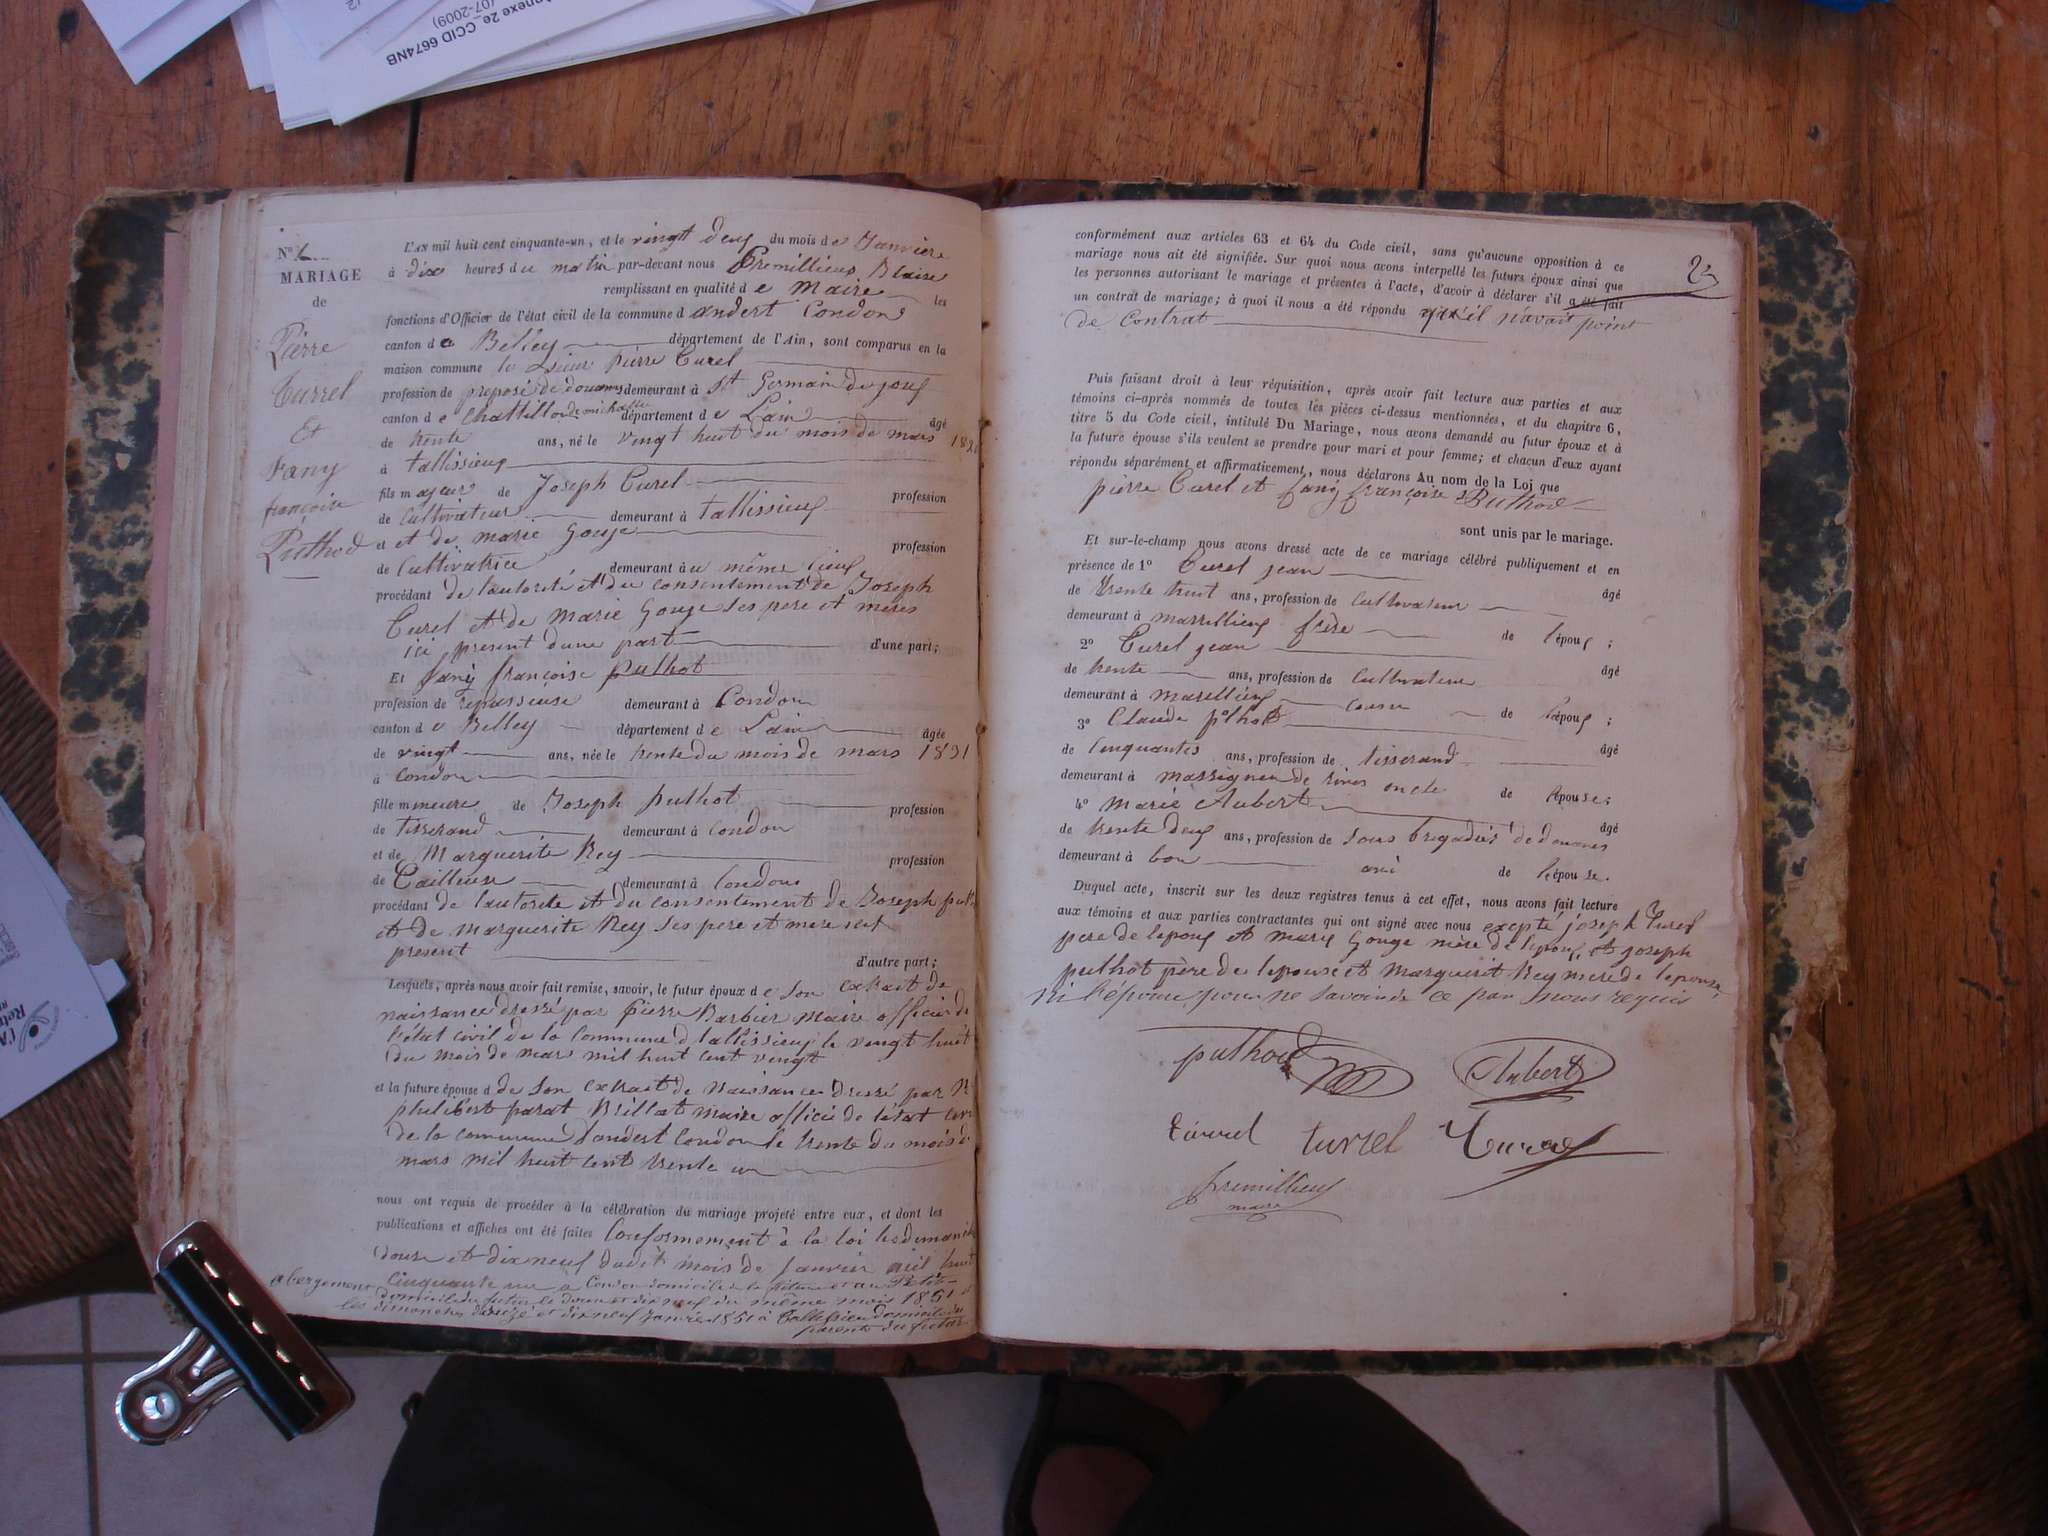 Annexe 2e_CCID 6674NB
/07-2009)
N°
MARIAGE
de
Pierre
Turrel
Et
Fany
françoise
Puthod
L'AN mil huit cent cinquante-un, et le vingt deux du mois de Janvier
à dix heures du matin par-devant nous Premillieux Blaise
remplissant en qualité de Maire les
fonctions d'Officier de l'état civil de la commune d andert Condon
canton de Belley département de l'Ain, sont comparus en la
maison commune le sieur pierre Turel
profession de preposé de douanes demeurant à St Germain de joux
canton de Chattillon de michaille département de Lain âgé
de trente ans, né le vingt huit du mois de mars 182
à tallissieux
fils majeur de Joseph Turel profession
de Cultivateur demeurant à tallissieux
et et de marie Gouje profession
de Cultivatrice demeurant au même lieux
procédant de lautorité et du consentement de Joseph
Turel et de Marie Gouge ses pere et mères
ici present dune part d'une part;
Et fany françoise puthot
profession de repasseuse demeurant à Condon
canton de Belley département de Lain âgée
de vingt ans, née le trente du mois de mars 1831
à Condon
fille mineure de Joseph puthot profession
de Tisserand demeurant à Condon
et de Marguerite Rey profession
de Tailleuse demeurant à Condon
procédant de lautorite et du consentement de Joseph put
et de Marguerite Rey ses pere et mere
present d'autre part;
Lesquels, après nous avoir fait remise, savoir, le futur époux de son extrait de
naissance dressé par Pierre Barbier Maire officier de
l'état civil de la Commune d tallissieux le vingt huit
du mois de mars mil huit cent vingt
et la future épouse d de son extrait de Naissance dressé par
philibert parat Brillat maire officié de l'état civi
de la commune dandert Condon le trente du mois d
mars mil huit cent trente un
nous ont requis de procéder à la célébration du mariage projeté entre eux, et dont les
publications et affiches ont été faites Conformement à la loi les Dimanch
douse et dix neuf dudit mois de Janvier mil huit
cinquante un à Condon domicile de la future et au Petit-
abergement domicile du futur le douze et dix neuf du même mois 1851 et
les dimanches douze et dix neuf Janvier 1851 à Tallissieu domicile des
parents du futur
conformément aux articles 63 et 64 du Code civil, sans qu'aucune opposition à ce
mariage nous ait été signifiée. Sur quoi nous avons interpellé les futurs époux ainsi que
les personnes autorisant le mariage et présentes à l'acte, d'avoir à déclarer s'il a été fait
un contrat de mariage; à quoi il nous a été répondu qu'il n'avait point
de Contrat
Puis faisant droit à leur réquisition, après avoir fait lecture aux parties et aux
témoins ci-après nommés de toutes les pièces ci-dessus mentionnées, et du chapitre 6,
titre 5 du Code civil, intitulé Du Mariage, nous avons demandé au futur époux et à
la future épouse s'ils veulent se prendre pour mari et pour femme; et chacun d'eux ayant
répondu séparément et affirmativement, nous déclarons Au nom de la Loi que
pierre Turel et fany françoise Puthod
sont unis par le mariage.
Et sur-le-champ nous avons dressé acte de ce mariage célébré publiquement et en
présence de 1° Turel jean âgé
de trente huit ans, profession de Cultivateur
demeurant à marrillieux frère de lépoux ;
2° Turel jean âgé
de trente ans, profession de Cultivateur
demeurant à Marillieux de lépoux ;
3° Claude puthot âgé
de Cinquantes ans, profession de tisserand
demeurant à massignieu de rives oncle de lépouse;
4° Marie Aubert âgé
de trente deux ans, profession de sous brigadiés de douanes
demeurant à bon ami de lépouse.
Duquel acte, inscrit sur les deux registres tenus à cet effet, nous avons fait lecture
aux témoins et aux parties contractantes qui ont signé avec nous excepté joseph Turel
pere de lepoux et marie Gouge mère de lepoux et joseph
puthot père de lepouse et Marguerit Rey mere de lepouse,
Ni l'épouse pour ne savoir de ce par nous requis
puthod
Aubert
turrel
turrel
Turrel
premillieux
maire